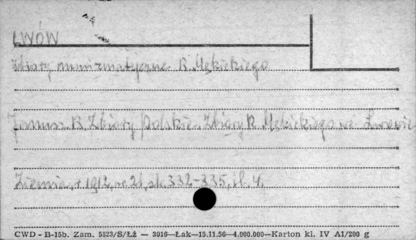 LWÓW
Zbiory numizmatyczne R. Mękickiego
Janusz B. Zbiory polskie. Zbiory R. Mękickiego we Lwowie
Ziemia, r. 1912, nr 21, st. 332-335, il. 4.
CWD - B-15b. Zam. 5523/S/Łż — 3016—Łak—15.11.56—4.000.000—Karton kl. IV A1/200 g